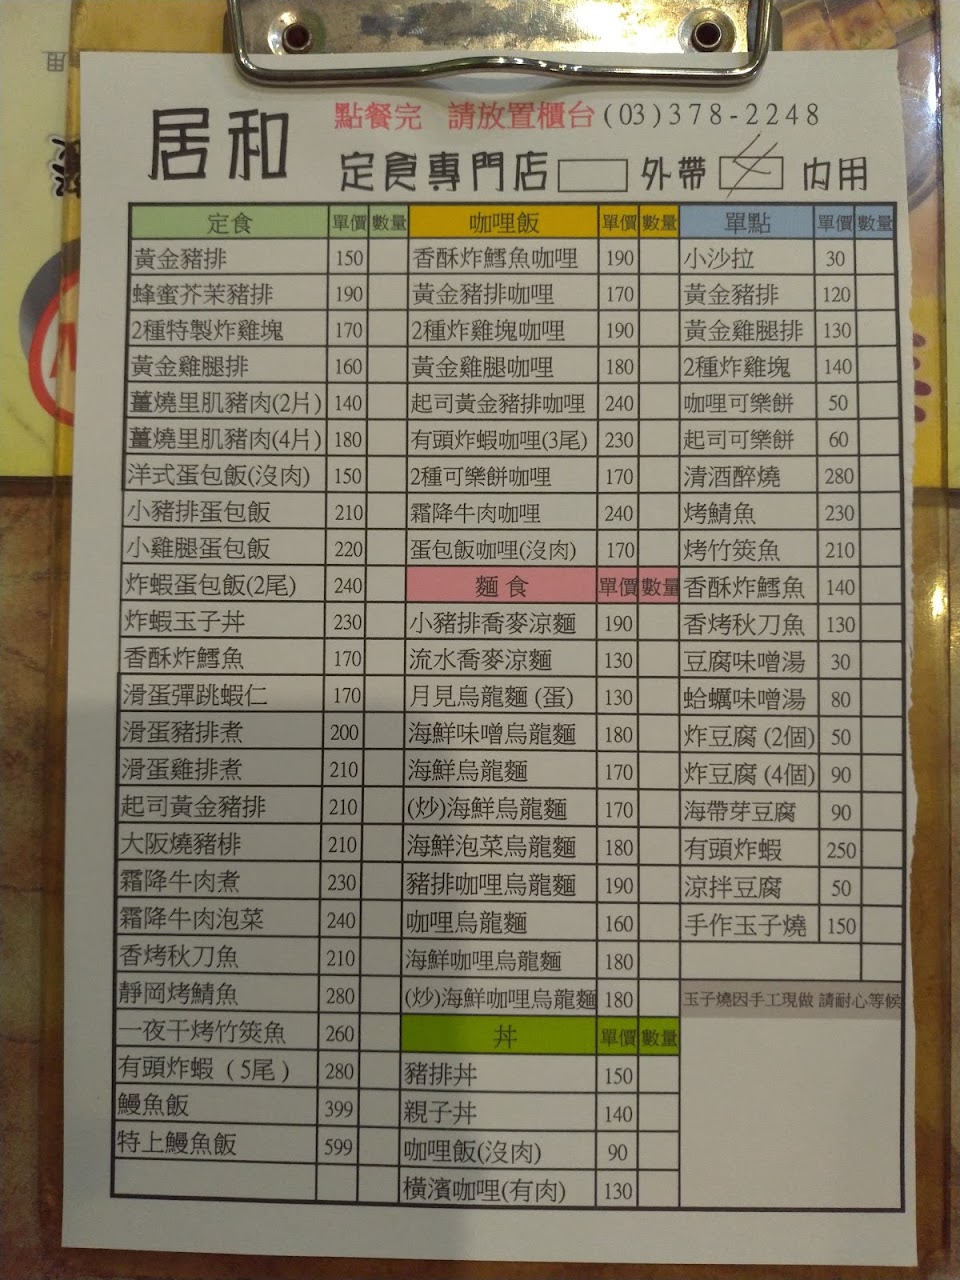 居和
點餐完 請放置櫃台(03)378-2248
定食專門店 外帶 內用
定食 單價 數量
黃金豬排 150
蜂蜜芥茉豬排 190
2種特製炸雞塊 170
黃金雞腿排 160
薑燒里肌豬肉(2片) 140
薑燒里肌豬肉(4片) 180
洋式蛋包飯(沒肉) 150
小豬排蛋包飯 210
小雞腿蛋包飯 220
炸蝦蛋包飯(2尾) 240
炸蝦玉子丼 230
香酥炸鱈魚 170
滑蛋彈跳蝦仁 170
滑蛋豬排煮 200
滑蛋雞排煮 210
起司黃金豬排 210
大阪燒豬排 210
霜降牛肉煮 230
霜降牛肉泡菜 240
香烤秋刀魚 210
靜岡烤鯖魚 280
一夜干烤竹筴魚 260
有頭炸蝦(5尾) 280
鰻魚飯 399
特上鰻魚飯 599
咖哩飯 單價 數量
香酥炸鱈魚咖哩 190
黃金豬排咖哩 170
2種炸雞塊咖哩 190
黃金雞腿咖哩 180
起司黃金豬排咖哩 240
有頭炸蝦咖哩(3尾) 230
2種可樂餅咖哩 170
霜降牛肉咖哩 240
蛋包飯咖哩(沒肉) 170
麵食 單價 數量
小豬排喬麥涼麵 190
流水喬麥涼麵 130
月見烏龍麵(蛋) 130
海鮮味噌烏龍麵 180
海鮮烏龍麵 170
(炒)海鮮烏龍麵 170
海鮮泡菜烏龍麵 180
豬排咖哩烏龍麵 190
咖哩烏龍麵 160
海鮮咖哩烏龍麵 180
(炒)海鮮咖哩烏龍麵 180
丼 單價 數量
豬排丼 150
親子丼 140
咖哩飯(沒肉) 90
橫濱咖哩(有肉) 130
單點 單價 數量
小沙拉 30
黃金豬排 120
黃金雞腿排 130
2種炸雞塊 140
咖哩可樂餅 50
起司可樂餅 60
清酒醉燒 280
烤鯖魚 230
烤竹筴魚 210
香酥炸鱈魚 140
香烤秋刀魚 130
豆腐味噌湯 30
蛤蠣味噌湯 80
炸豆腐(2個) 50
炸豆腐(4個) 90
海帶芽豆腐 90
有頭炸蝦 250
涼拌豆腐 50
手作玉子燒 150
玉子燒因手工現做 請耐心等候